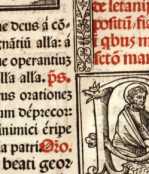 ne deus a cō-
gnātiū alla: a
e operantiuȝ
lla alla. ps.
us orationes
um dēprecor:
inimici eripe
a patria Oro.
beati geor
te letani
positū: fia
qbus m
fectō man